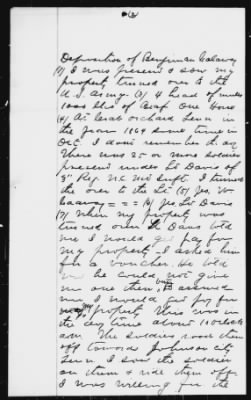 Deposition of Benjamin Calaway
(1) I was present & saw my
property turned over to the
U.S. Army. (3) 4 head of mules
1000 lbs of Beaf one horse
(4) At Crab orchard Tenn in
the year 1864 some time in
Oct I dont remember the day
There was 25 or more soldiers
present under Lt Davis of
3" Reg. N.C. Mt Inft. I turned
the over to the Lt (5) yes, W
= = = (6) yes, Lt Davis
(7) When my property was
turned over Lt Davis told
me I would get pay for
my property I asked him
for a voucher. He told
me he could not give
me one then, but assured
me I would get pay for
my property. This was in
the day time about 10 oclock
am. The soldiers rode them
off towards Johnson city
Tenn. I saw the soldiers
on them & ride them off
I was willing for the